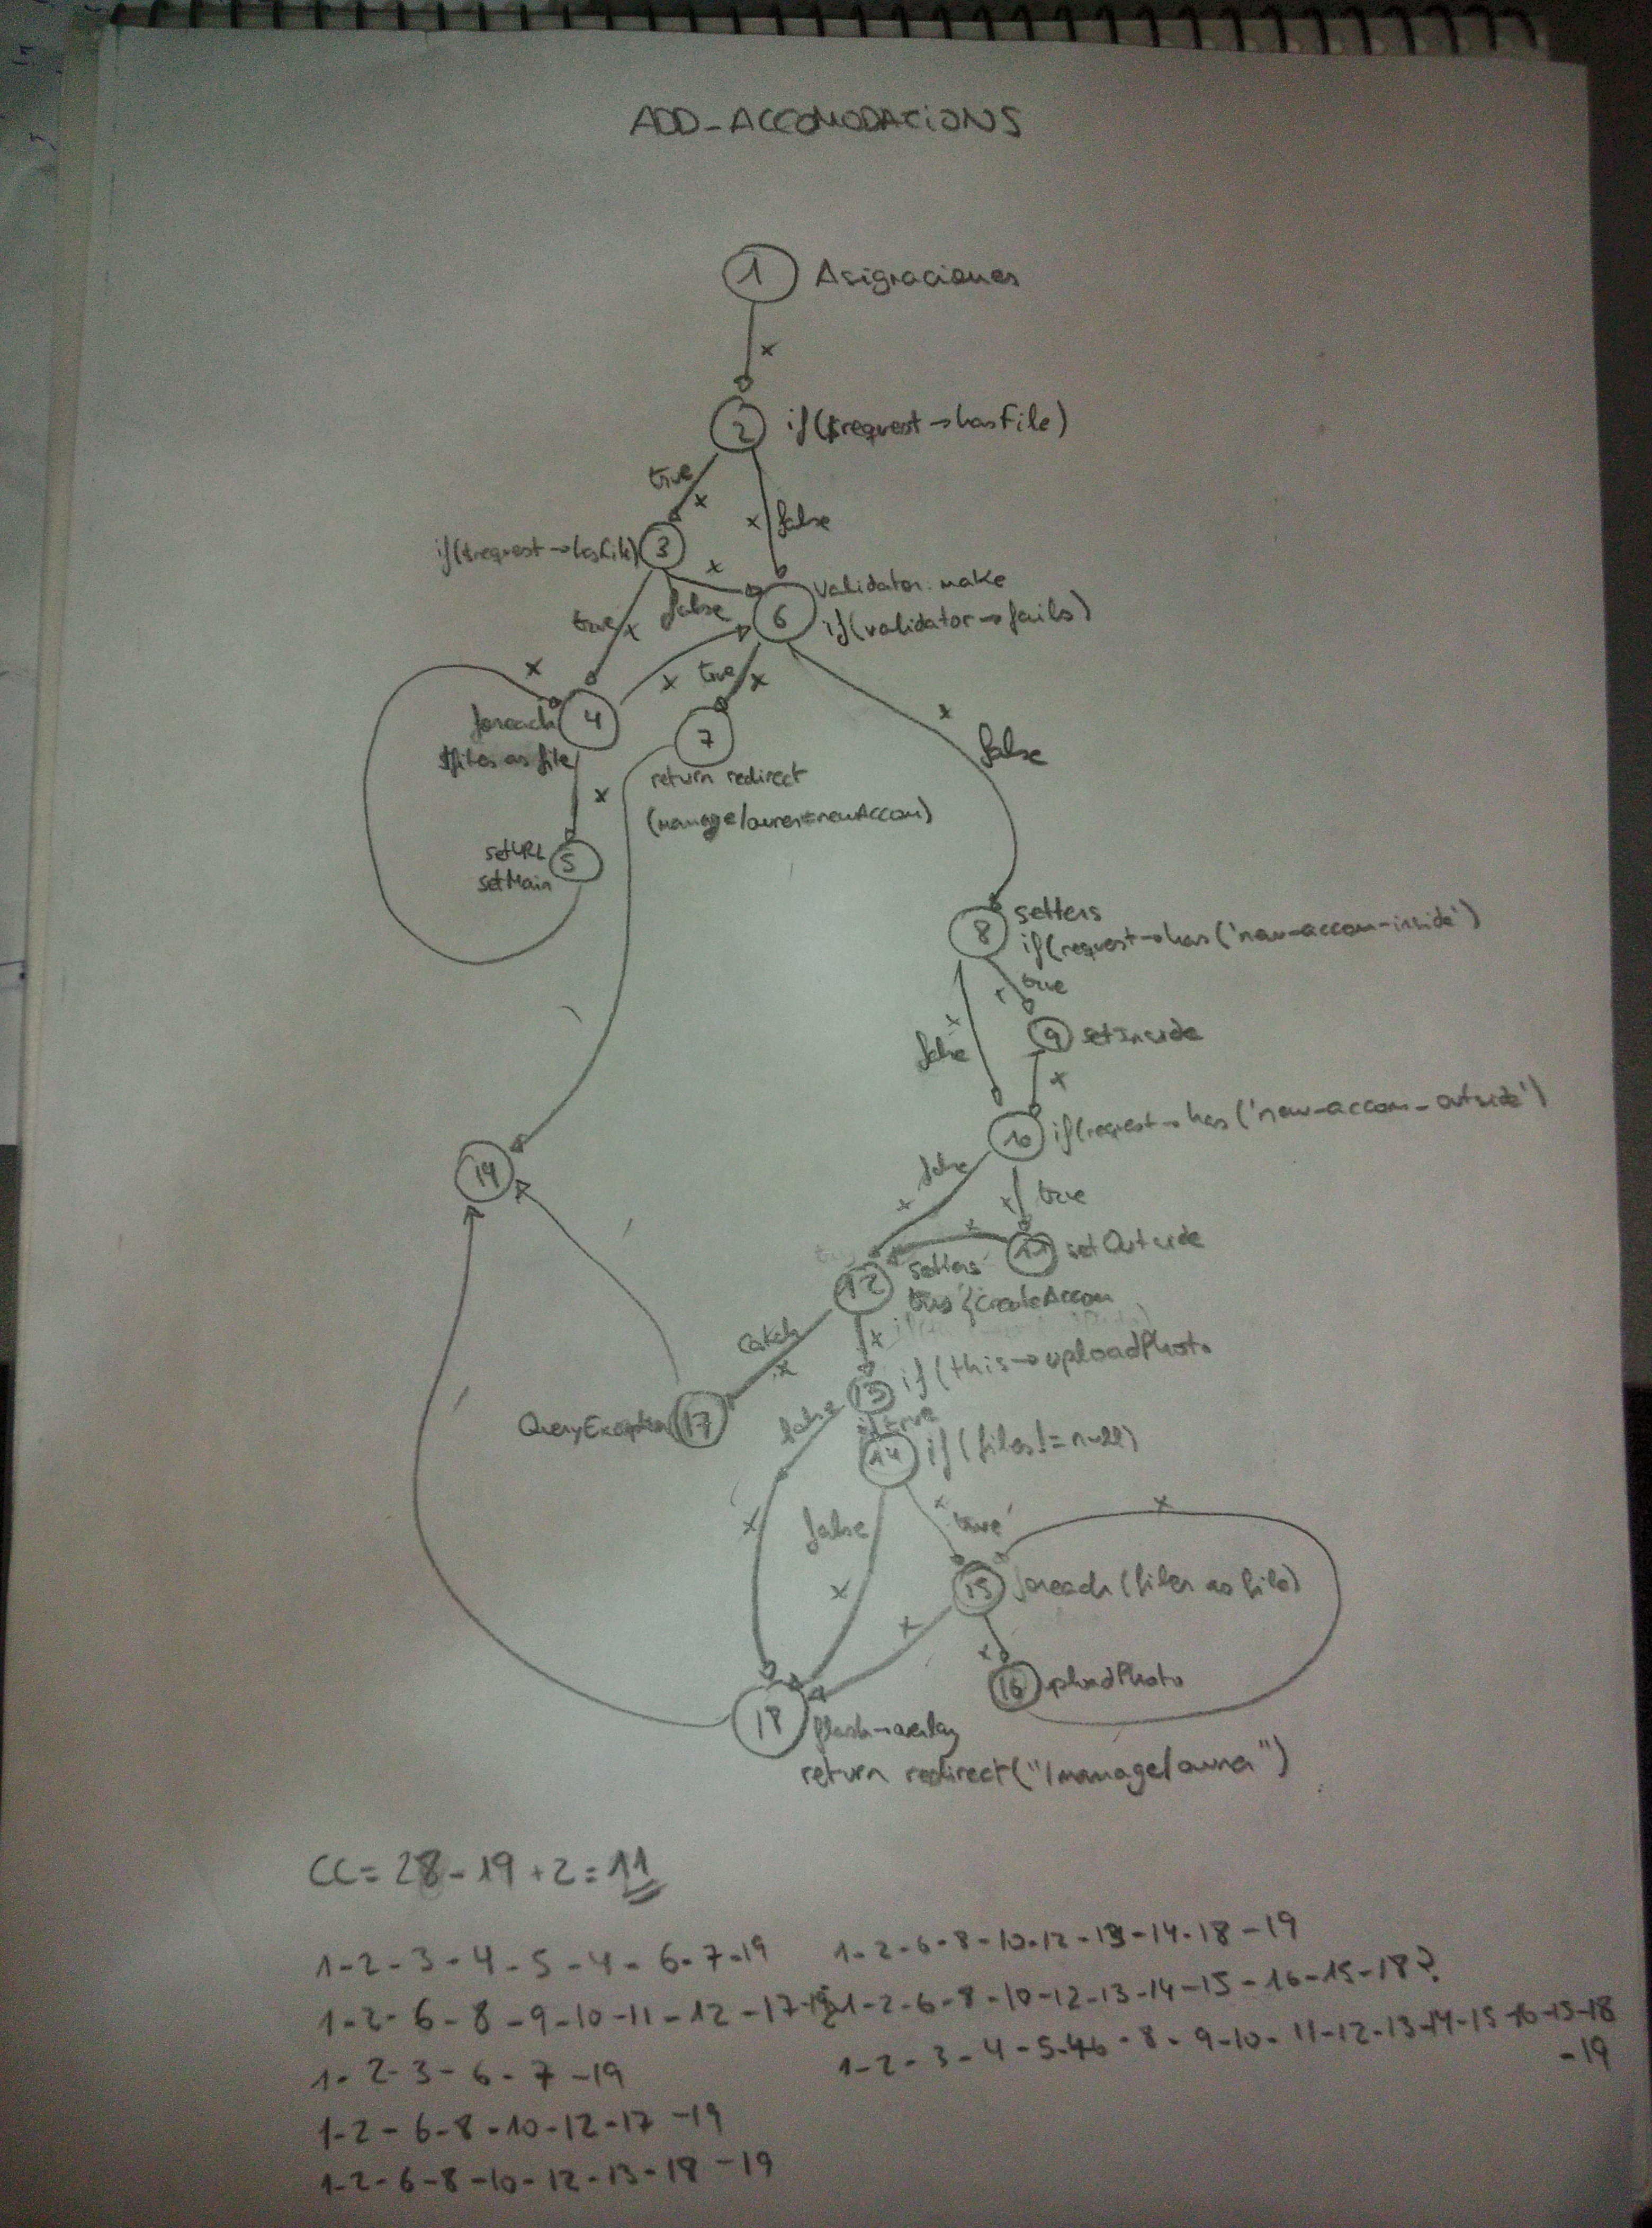 ADD-ACCOMODACIONS
1 Asignaciones
x
2 if($request→hasFile)
true x
x false
if($request→hasFile) 3
x
true x
false
6 Validator.make
if(validator→fails)
x
x
true x
x false
foreach 4
$files as file
x
7
return redirect
(manage/owner#newAccom)
setURL 5
setMain
8 setters
if(request→has('new-accom-inside')
true
x
false
9 setInside
x
10 if(request→has('new-accom-outside')
false
x
x true
19
x
11 setOutside
12 setters
{createAccom
catch
x
x
13 if(this→uploadPhoto
true
QueryException 17
false
14 if(files!=null)
x
false
x
x true
x
15 foreach(files as file)
x
x
16 uploadPhoto
18 flash→overlay
return redirect("/manage/owner")
CC= 28-19+2=11
1-2-3-4-5-4-6-7-19
1-2-6-8-10-12-13-14-18-19
1-2-6-8-9-10-11-12-17-19
1-2-6-8-10-12-13-14-15-16-15-18?
1-2-3-6-7-19
1-2-3-4-5-4-6-8-9-10-11-12-13-14-15-16-15-18
-19
1-2-6-8-10-12-17-19
1-2-6-8-10-12-13-18-19